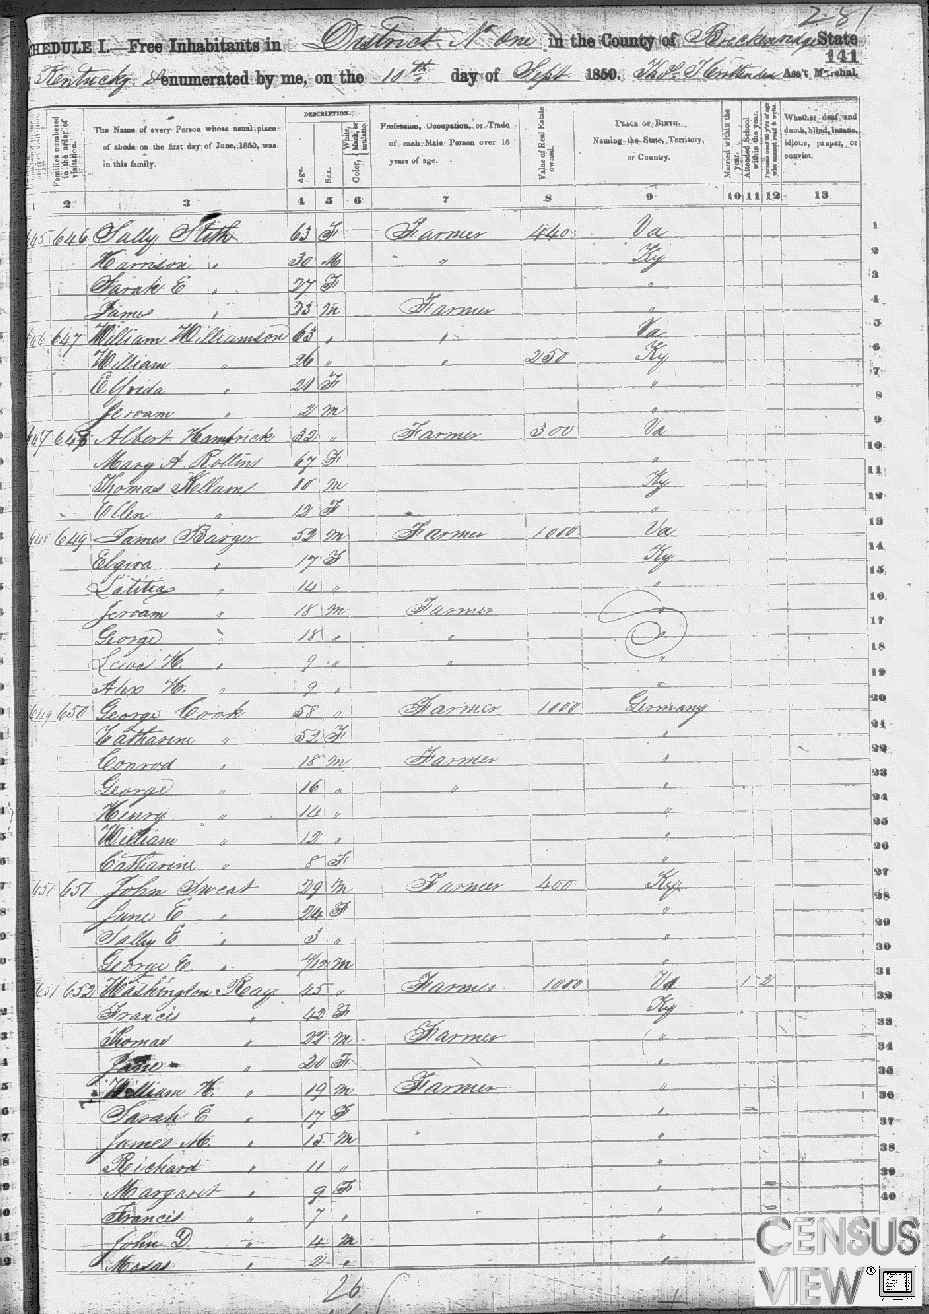 281
SCHEDULE I.—Free Inhabitants in District No One in the County of Breckenridge State
141
Kentucky enumerated by me, on the 10th day of Sept 1850. Thos J Crittenden Ass't Marshal.
Families numbered in the order of visitation.
The Name of every Person whose usual place of abode on the first day of June, 1850, was in this family.
DESCRIPTION.
Age.
Sex.
Color, White, black, or mulatto.
Profession, Occupation, or Trade of each Male Person over 15 years of age.
Value of Real Estate owned.
PLACE OF BIRTH. Naming the State, Territory, or Country.
Married within the year.
Attended School within the year.
Persons over 20 y'rs of age who cannot read & write.
Whether deaf and dumb, blind, insane, idiotic, pauper, or convict.
1 2 3 4 5 6 7 8 9 10 11 12 13
645 646 Sally Stith 63 F Farmer 440 Va 1
Harrison " 30 M " Ky 2
Sarah E " 27 F " 3
James " 23 M Farmer " 4
646 647 William Williamson 63 " " Va 5
William " 26 " " 250 Ky 6
Elfrida " 21 F " 7
Jeroam " 2 M " 8
647 648 Albert Hambrick 32 " Farmer 300 Va 9
Mary A Rollins 67 F " 10
Thomas Kellams 10 M Ky 11
Ellen " 12 F " 12
648 649 James Barger 52 M Farmer 1000 Va 13
Elgira " 17 F Ky 14
Latitia " 14 " " 15
Jeroam " 18 M Farmer " 16
George " 18 " " " 17
Levi H. " 9 " " " 18
Alex H. " 9 " " 19
649 650 George Cook 58 " Farmer 1000 Germany 20
Catharine " 52 F " 21
Conrod " 18 M Farmer " 22
George " 16 " " " 23
Henry " 14 " " 24
William " 12 " " 25
Catharine " 8 F " 26
651 651 John Sweat 29 M Farmer 400 Ky. 27
June E " 24 F " 28
Sally E " 3 " " 29
George E " 7/12 M " 30
651 652 Washington Reay 45 " Farmer 1000 Va 1 2 31
Francis " 42 F Ky 32
Thomas " 22 M Farmer " 33
Jane " 20 F " 34
William H. " 19 M Farmer " 35
Sarah E " 17 F " 36
James M. " 15 M " " 37
Richard " 11 " " 38
Margaret " 9 F " 39
Francis " 7 " " 40
John D. " 4 M "
" 2 " "
26
CENSUS VIEW®